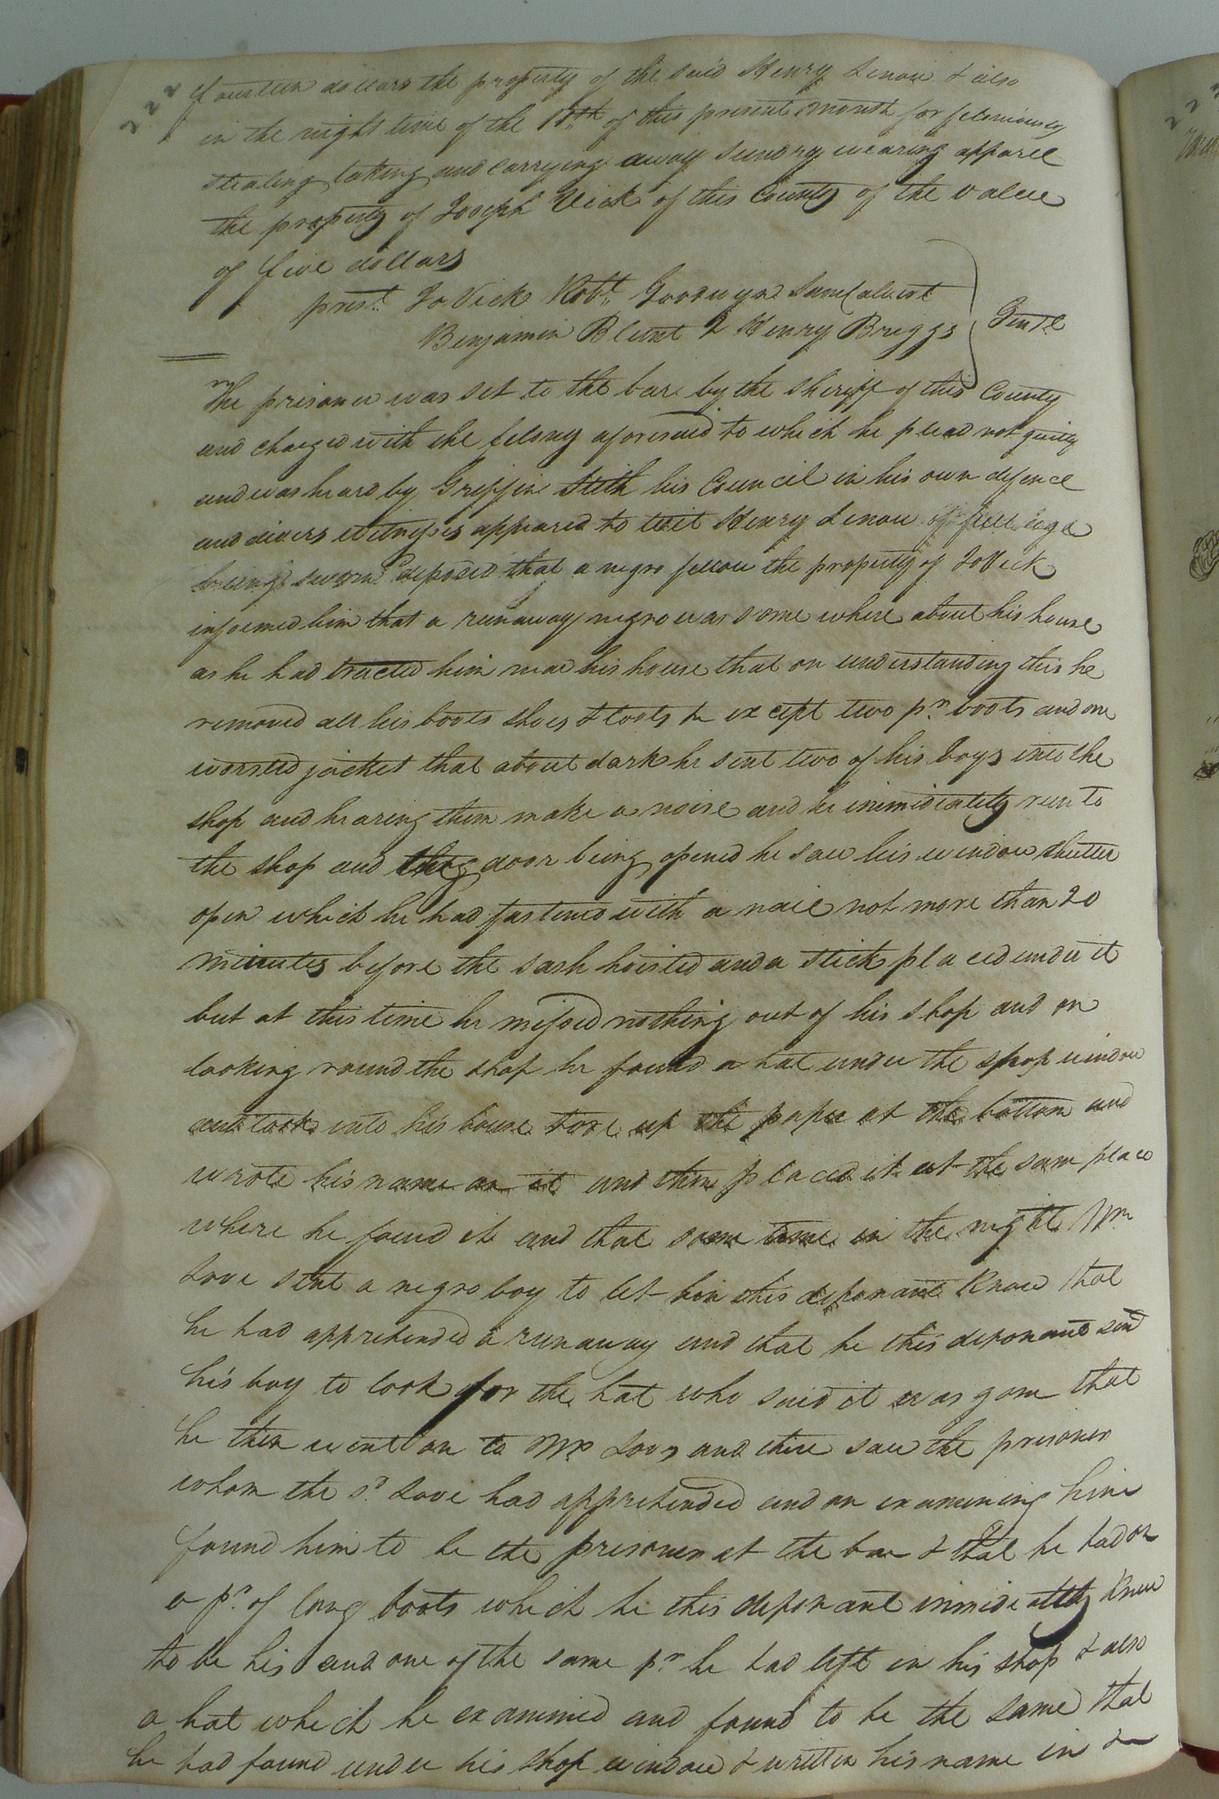 222
fourteen dollars the property of the said Henry Lenow & also
in the night time of the 15th of this present month for feloniously
stealing taking and carrying away sundry wearing apparel
the property of Joseph Vick of this County of the value
of five dollars
prest. Jo Vick Robt. Goodwyn Saml Calvert
Benjamin Blunt & Henry Briggs Gentl
The prisoner was set to the bare by the sheriff of this County
and charged with the felony aforesaid to which he plead not guilty
and was heard by Griffin Stith his Council in his own defence
and divers witnesses appeared to wit Henry Lenow of full age
being sworn deposed that a negro fellow the property of Jo Vick
informed him that a runaway negro was some where about his house
as he had tracted him near his house that on understanding this he
removed all his boots shoes & tools &c except two pr. boots and one
worsted jacket that about dark he sent two of his boys into the
shop and hearing them make a noise and he immediately run to
the shop and the door being opened he saw his window shutter
open which he had fastened with a nail not more than 20
minutes before the sash hoisted and a stick placed under it
but at this time he missed nothing out of his shop and on
looking round the shop he found a hat under the shop window
and took into his house tore up the paper at the bottom and
wrote his name on it and then placed it at the same place
where he found it and that some time in the night Wm
Love sent a negro boy to let him this deponant know that
he had apprehended a runaway and that he this deponant send
his boy to look for the hat who said it was gone that
he then went on to Mr Loves and there saw the prisoner
whom the sd. Love had apprehended and on examining him
found him to be the prisoner at the bar & that he had on
a pr. of long boots which he this deponant immidiately knew
to be his and one of the same pr he had left in his shop & also
a hat which he examined and found to be the same that
he had found under his shop window & written his name in &